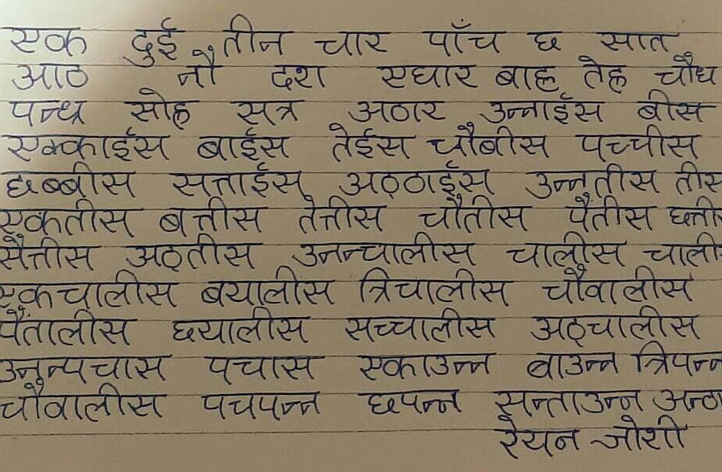 एक दुई तीन चार पाँच छ सात
आठ नौ दश एघार बाह्र तेह्र चौध
पन्ध्र सोह्र सत्र अठार उन्नाईस बीस
एक्काईस बाईस तेईस चौबीस पच्चीस
छब्बीस सत्ताईस अठ्ठाईस उन्नतीस तीस
एकतीस बत्तीस तेत्तीस चौतीस पैतीस छत्ती
सैत्तीस अठ्तीस उनन्चालीस चालीस चाली
एकचालीस बयालीस त्रिचालीस चौवालीस
पैंतालीस छयालीस सच्चालीस अठ्चालीस
उनन्पचास पचास एकाउन्न बाउन्न त्रिपन्न
चौवालीस पचपन्न छपन्न सन्ताउन्न अन्ठा
रेयन जोशी